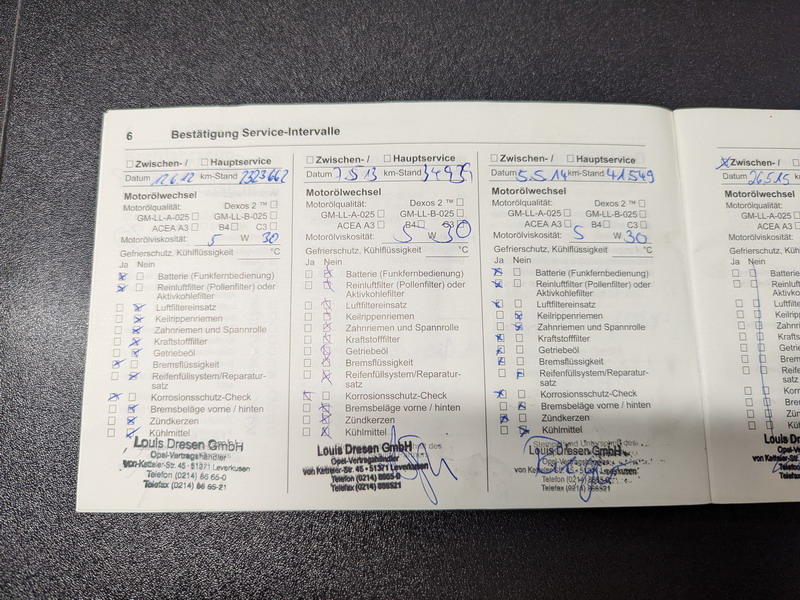 6 Bestätigung Service-Intervalle
☐ Zwischen-/ ☐ Hauptservice
Datum 12.6.12 km-Stand
Motorölwechsel
Motorölqualität: Dexos 2 ™ ☐
GM-LL-A-025 ☐ GM-LL-B-025 ☐
ACEA A3 ☐ B4 ☐ C3 ☐
Motorölviskosität: 5 W 30
Gefrierschutz, Kühlflüssigkeit °C
Ja Nein
Batterie (Funkfernbedienung)
Reinluftfilter (Pollenfilter) oder
Aktivkohlefilter
Luftfiltereinsatz
Keilrippenriemen
Zahnriemen und Spannrolle
Kraftstofffilter
Getriebeöl
Bremsflüssigkeit
Reifenfüllsystem/Reparatur-
satz
Korrosionsschutz-Check
Bremsbeläge vorne / hinten
Zündkerzen
Kühlmittel
Louis Dresen GmbH
Opel-Vertragshändler
von-Ketteler-Str. 45 - 51371 Leverkusen
Telefon (0214) 86 65-0
Telefax (0214) 86 65-21
☐ Zwischen-/ ☐ Hauptservice
Datum 7.5.13 km-Stand 34939
Motorölwechsel
Motorölqualität: Dexos 2 ™ ☐
GM-LL-A-025 ☐ GM-LL-B-025 ☐
ACEA A3 ☐ B4 ☐ C3 ☐
Motorölviskosität: 5 W 30
Gefrierschutz, Kühlflüssigkeit °C
Ja Nein
Batterie (Funkfernbedienung)
Reinluftfilter (Pollenfilter) oder
Aktivkohlefilter
Luftfiltereinsatz
Keilrippenriemen
Zahnriemen und Spannrolle
Kraftstofffilter
Getriebeöl
Bremsflüssigkeit
Reifenfüllsystem/Reparatur-
satz
Korrosionsschutz-Check
Bremsbeläge vorne / hinten
Zündkerzen
Kühlmittel
Louis Dresen GmbH
Opel-Vertragshändler
von-Ketteler-Str. 45 - 51371 Leverkusen
Telefon (0214) 8665-0
Telefax (0214) 866521
☐ Zwischen-/ ☐ Hauptservice
Datum 5.5.14 km-Stand 41549
Motorölwechsel
Motorölqualität: Dexos 2 ™ ☐
GM-LL-A-025 ☐ GM-LL-B-025 ☐
ACEA A3 ☐ B4 ☐ C3 ☐
Motorölviskosität: 5 W 30
Gefrierschutz, Kühlflüssigkeit °C
Ja Nein
Batterie (Funkfernbedienung)
Reinluftfilter (Pollenfilter) oder
Aktivkohlefilter
Luftfiltereinsatz
Keilrippenriemen
Zahnriemen und Spannrolle
Kraftstofffilter
Getriebeöl
Bremsflüssigkeit
Reifenfüllsystem/Reparatur-
satz
Korrosionsschutz-Check
Bremsbeläge vorne / hinten
Zündkerzen
Kühlmittel
Stempel und Unterschrift des
Louis Dresen GmbH
Opel-Vertragshändler
Telefon (0214)
Telefax (0214) 866521
☒ Zwischen-/ ☐ Ha
Datum 26.5.15 km-
Motorölwechsel
Motorölqualität:
GM-LL-A-025 ☐
ACEA A3 ☐
Motorölviskosität:
Gefrierschutz, Kühl
Ja Nein
Batterie
Reinluf
Aktivko
Luftfilte
Keilripp
Zahnrie
Kraftsto
Getrieb
Bremsf
Reifenf
satz
Korrosi
Bremsb
Zündke
Kühlmi
Louis D
Opel-
von Ketteler-
Telef
Telef